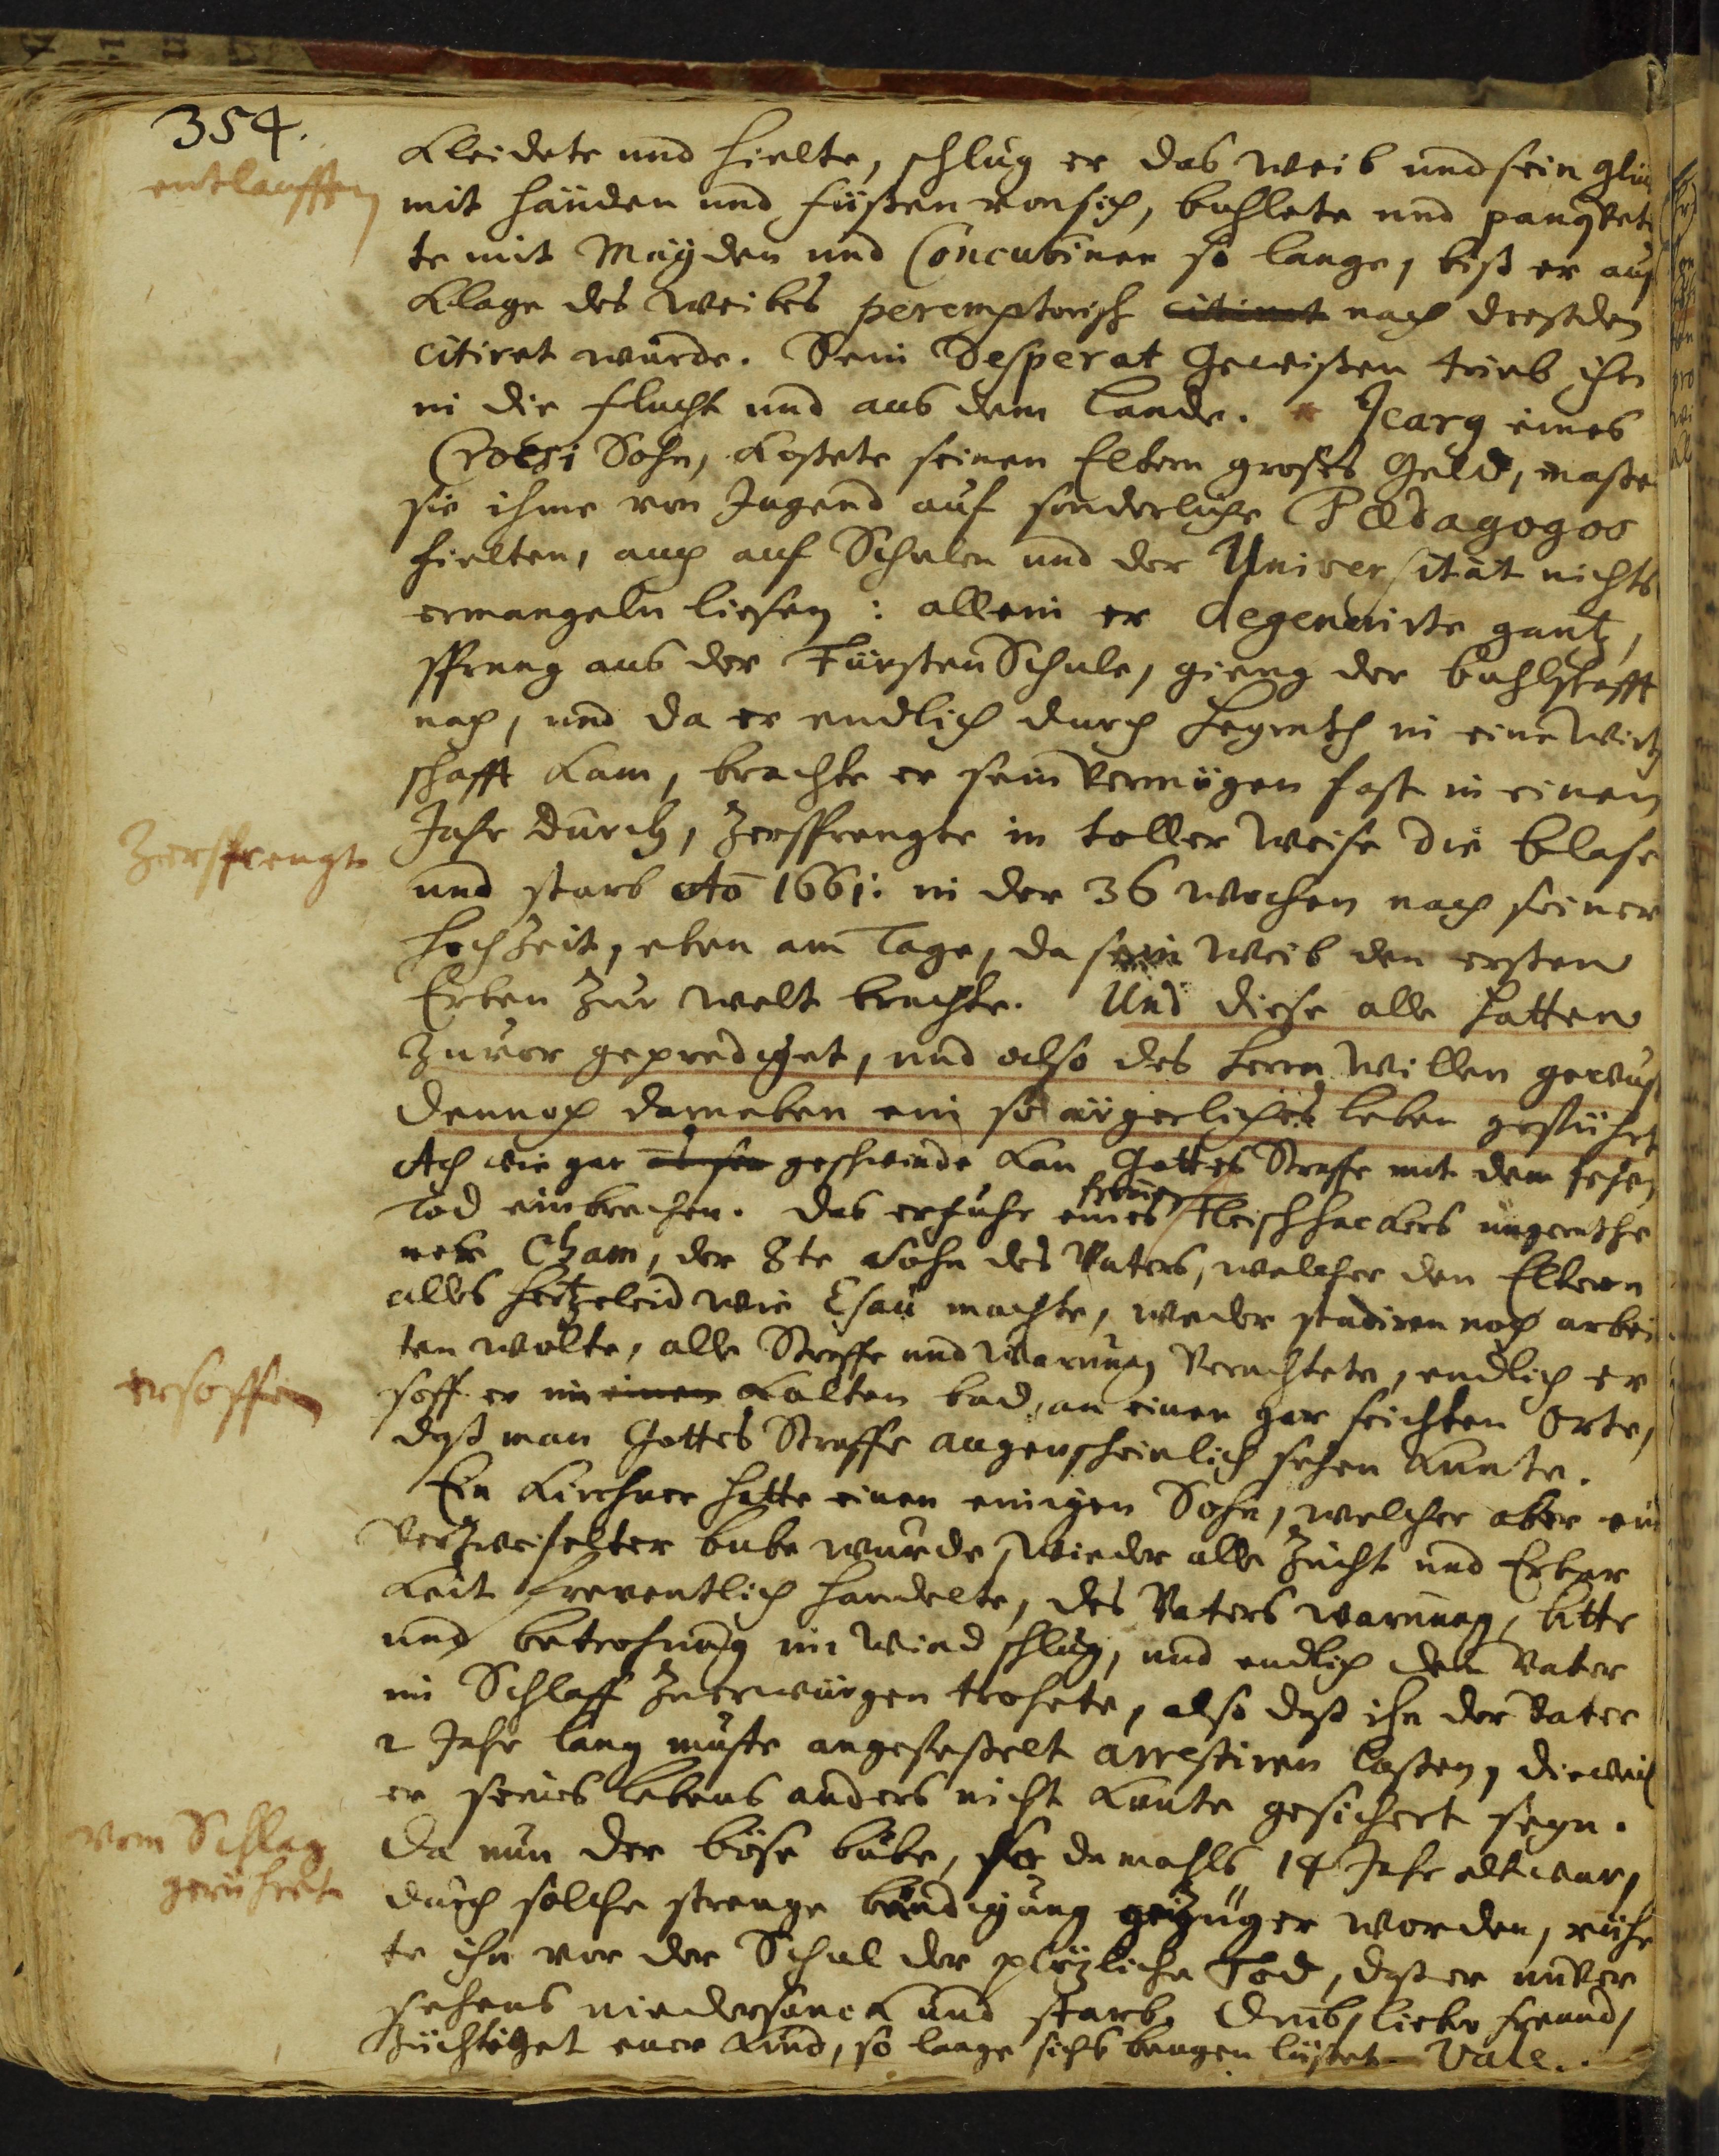 354.
entlauffen
kleidete und hielte, schlug er das Weib und sein glück
mit händen und füßen von sich, buhlete und panqvet
te mit Mägden und Concubinen so lange, biß er auf
Klage des Weibes peremptorisch citiret nach dreßden
citiret wurde. Sein Desperat Gewißen trieb ihn
in die flucht und aus dem Lande. * Jcarg eines
Croesi Sohn, kostete seinen Eltern großes Geld, maßen
sie ihme von Jugend auf sonderliche Pædagogos
hielten, auch auf Schulen und der Universität nichts
ermangeln ließen: allein er degenerirte gantz,
sprang aus der Fürsten Schule, gieng der buhlschafft
nach, und da er endlich durch heyrath in eine Wirth
schafft kam, brachte er sein Vermögen fast in einem
Zersprengt
Jahr durch, zersprengte in toller Weise die blase
und starb Ao 1661: in der 36 Wochen nach seiner
hochzeit, eben am Tage, da sein Weib den ersten
Erben zur welt brachte. Und diese alle hatten
zuvor geprediget, und also des Herrn Willen gewust
dennoch darneben ein so ärgerliches leben geführt
Ach wie gar geschwinde kan Gottes Straffe mit dem
Tod einbrechen. Das erfuhr eines Fleischhackers ungerathe
ner Cham, der 8te Sohn des Vaters, welcher den Eltern
alles hertzeleid wie Esau machte, weder studiren noch arbei
ten wolte, alle Straffe und Warnung verachtete, endlich er
ersoffen
soff er im einen kalten bad, an einen gar seichten Orte,
daß man Gottes Straffe augenscheinlich sehen kunte.
Ein Kirchner hatte einen einigen Sohn, welcher aber ein
verzweifelter bube wurde, wieder alle Zucht und Erbar
keit freventlich handelte, des Vaters warnung, bitte
und betrohung in Wind schlug, und endlich dem Vater
im Schlaff zu erwürgen trohete, also daß ihn der Vater
2 Jahr lang muste angefeßelt arrestiren laßen, dieweil
er seines lebens anders nicht kunte gesichert seyn.
vom Schlag
gerühret
Da nun der böse bube, so damahls 14 Jahr alt war,
durch solche strenge bändigung worden, rühr
te ihn vor der Schul der plötzliche Tod, daß er unver
sehens niedersanck und starb. Drumb, lieber freund,
züchtiget euer Kind, so lange sichs beugen läßet. Vale.